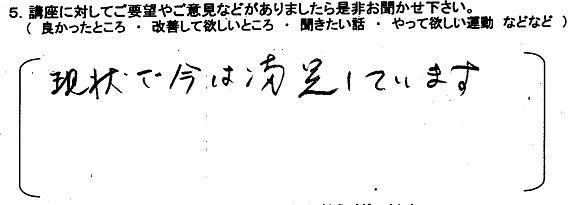 5. 講座に対してご要望やご意見などがありましたら是非お聞かせ下さい。
( 良かったところ ・ 改善して欲しいところ ・ 聞きたい話 ・ やって欲しい運動 などなど )
現状で今は満足しています